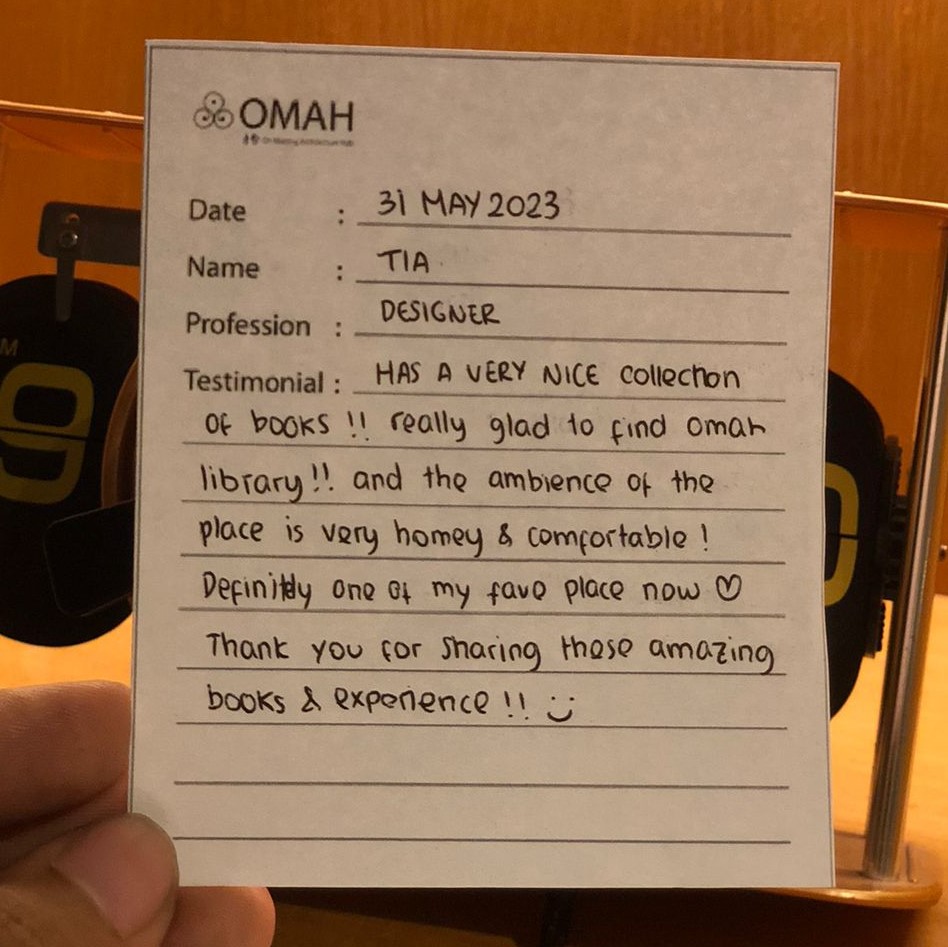 OMAH
Date : 31 MAY 2023
Name : TIA
Profession : DESIGNER
Testimonial : HAS A VERY NICE collection
of books !! really glad to find omah
library!! and the ambience of the
place is very homey & comfortable !
Definitely one of my fave place now ♡
Thank you for sharing these amazing
books & experience !! :)
M
9